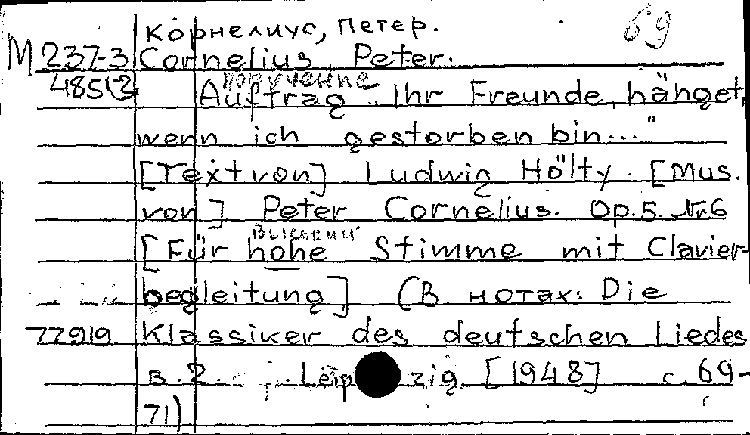 Корнелиус, Петер. 69
М 237-3 Cornelius Peter.
485(2 поручение
Auftrag "Ihr Freunde, hänget,
wenn ich gestorben bin..."
[Text von] Ludwig Hölty. [Mus.
von] Peter Cornelius. Op.5. №6
[Für hohe Stimme mit Clavier-
begleitung] (В нотах: Die
77919 Klassiker des deutschen Liedes
в. 2. Leipzig. [1948] с. 69-
71)